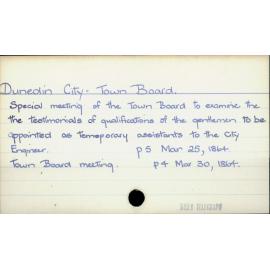 Dunedin City - Town Board.
Special meeting of the Town Board to examine the
the testimonials of qualifications of the gentlemen to be
appointed as temporary assistants to the City
Engineer. p 5 Mar 25, 1864.
Town Board meeting. p 4 Mar 30, 1864.
DAILY TELEGRAPH